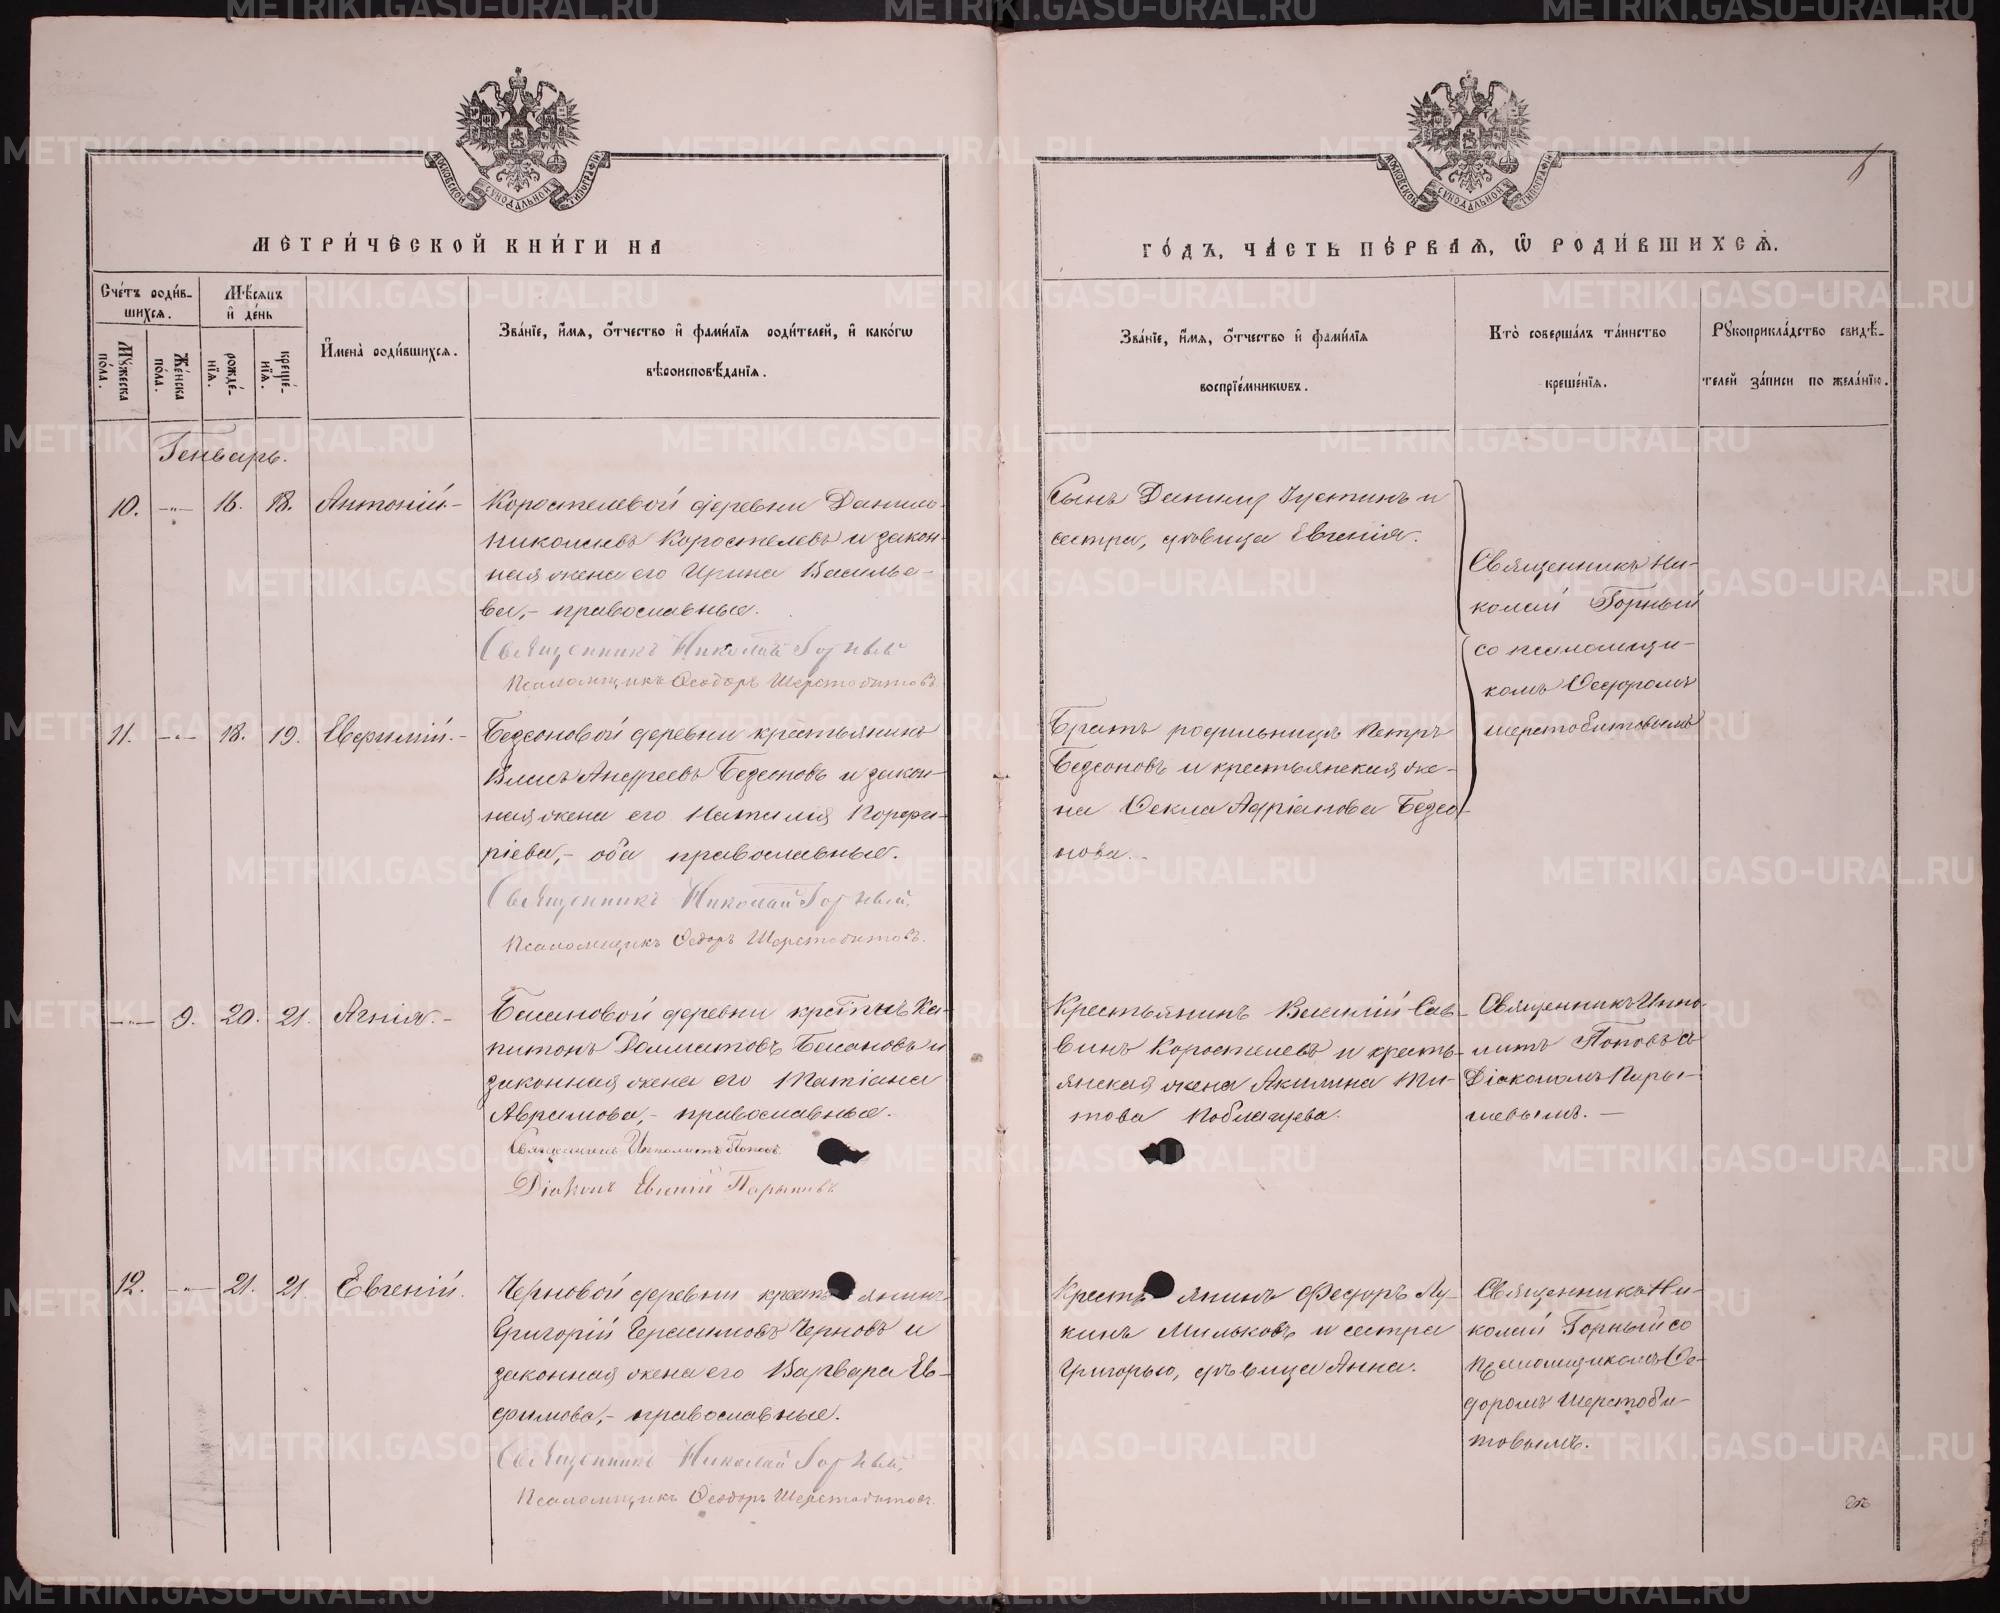 МЕТРИ́ЧЕСКОЙ КНИ́ГИ НА
ГО́ДЪ, ЧА́СТЬ ПЕ́РВАѦ, Ѡ РОДИ́ВШИХСѦ.
Сче́тъ роди́в-
шихсѧ.
Мѣ́сѧцъ
и де́нь
Му́жеска
по́ла.
Же́нска
по́ла.
рожде́-
нїѧ.
креще́-
нїѧ.
Имена̀ роди́вшихсѧ.
Зва́нїе, и́мѧ, ѻ́тчество и фами́лїѧ роди́телей, и како́гѡ
вѣроисповѣ́данїѧ.
Зва́нїе, и́мѧ, ѻ́тчество и фами́лїѧ
воспрїе́мникѡвъ.
Кто̀ соверша́лъ та́инство
креще́нїѧ.
Рꙋкоприкла́дство свидѣ́-
телей за́писи по жела́нїю.
Генварь.
10. 16. 18. Антоній.-
Коростелевой деревни Данило
Николаевъ Коростелевъ и закон-
ная жена его Ирина Василье-
ва,- православные.
Священникъ Николай Горный
Псаломщикъ Ѳеодоръ Шерстобитовъ
Сынъ Данила Іустинъ и
сестра, дѣвица Евгенія.
Священникъ Ни-
колай Горный
со псаломщи-
комъ Ѳедоромъ
Шерстобитовымъ
11. 18. 19. Евфимій.-
Бедсоновой деревни крестьянинъ
Власъ Андреевъ Бедсоновъ и закон-
ная жена его Наталія Порфи-
ріева,- оба православные.
Священникъ Николай Горный.
Псаломщикъ Ѳедоръ Шерстобитовъ.
Братъ родильницы Петръ
Бедсоновъ и крестьянская же-
на Ѳекла Адріанова Бедсо-
нова.
9. 20. 21. Агнія.-
Баситновой деревни
питонъ Далматовъ и
законная жена его Татіана
Аврамова,- православные.
Священникъ Ипполитъ Поповъ
Діаконъ Евгеній Парышевъ
Крестьянинъ Василій Сав-
винъ Коростелевъ и кресть-
янская жена Акилина Ти-
това
Священникъ Иппо-
литъ Поповъ съ
Діакономъ Пары-
шевымъ.
12. 21. 21. Евгеній.
Черновой деревни крестьянинъ
Григорій Герасимовъ Черновъ и
законная жена его Варвара Ев-
фимова,- православные.
Священникъ Николай Горный,
Псаломщикъ Ѳеодоръ Шерстобитовъ.
Крестьянинъ Федоръ Лу-
кинъ Мильковъ и сестра
Григорью, дѣвица Анна.
Священникъ Ни-
колай Горный со
Псаломщикомъ Ѳе-
доромъ Шерстоби-
товымъ.
МОСКОВСКОЙ СѴНОДАЛЬНОЙ ТИПОГРАФІИ
МОСКОВСКОЙ СѴНОДАЛЬНОЙ ТИПОГРАФІИ
METRIKI.GASO-URAL.RU